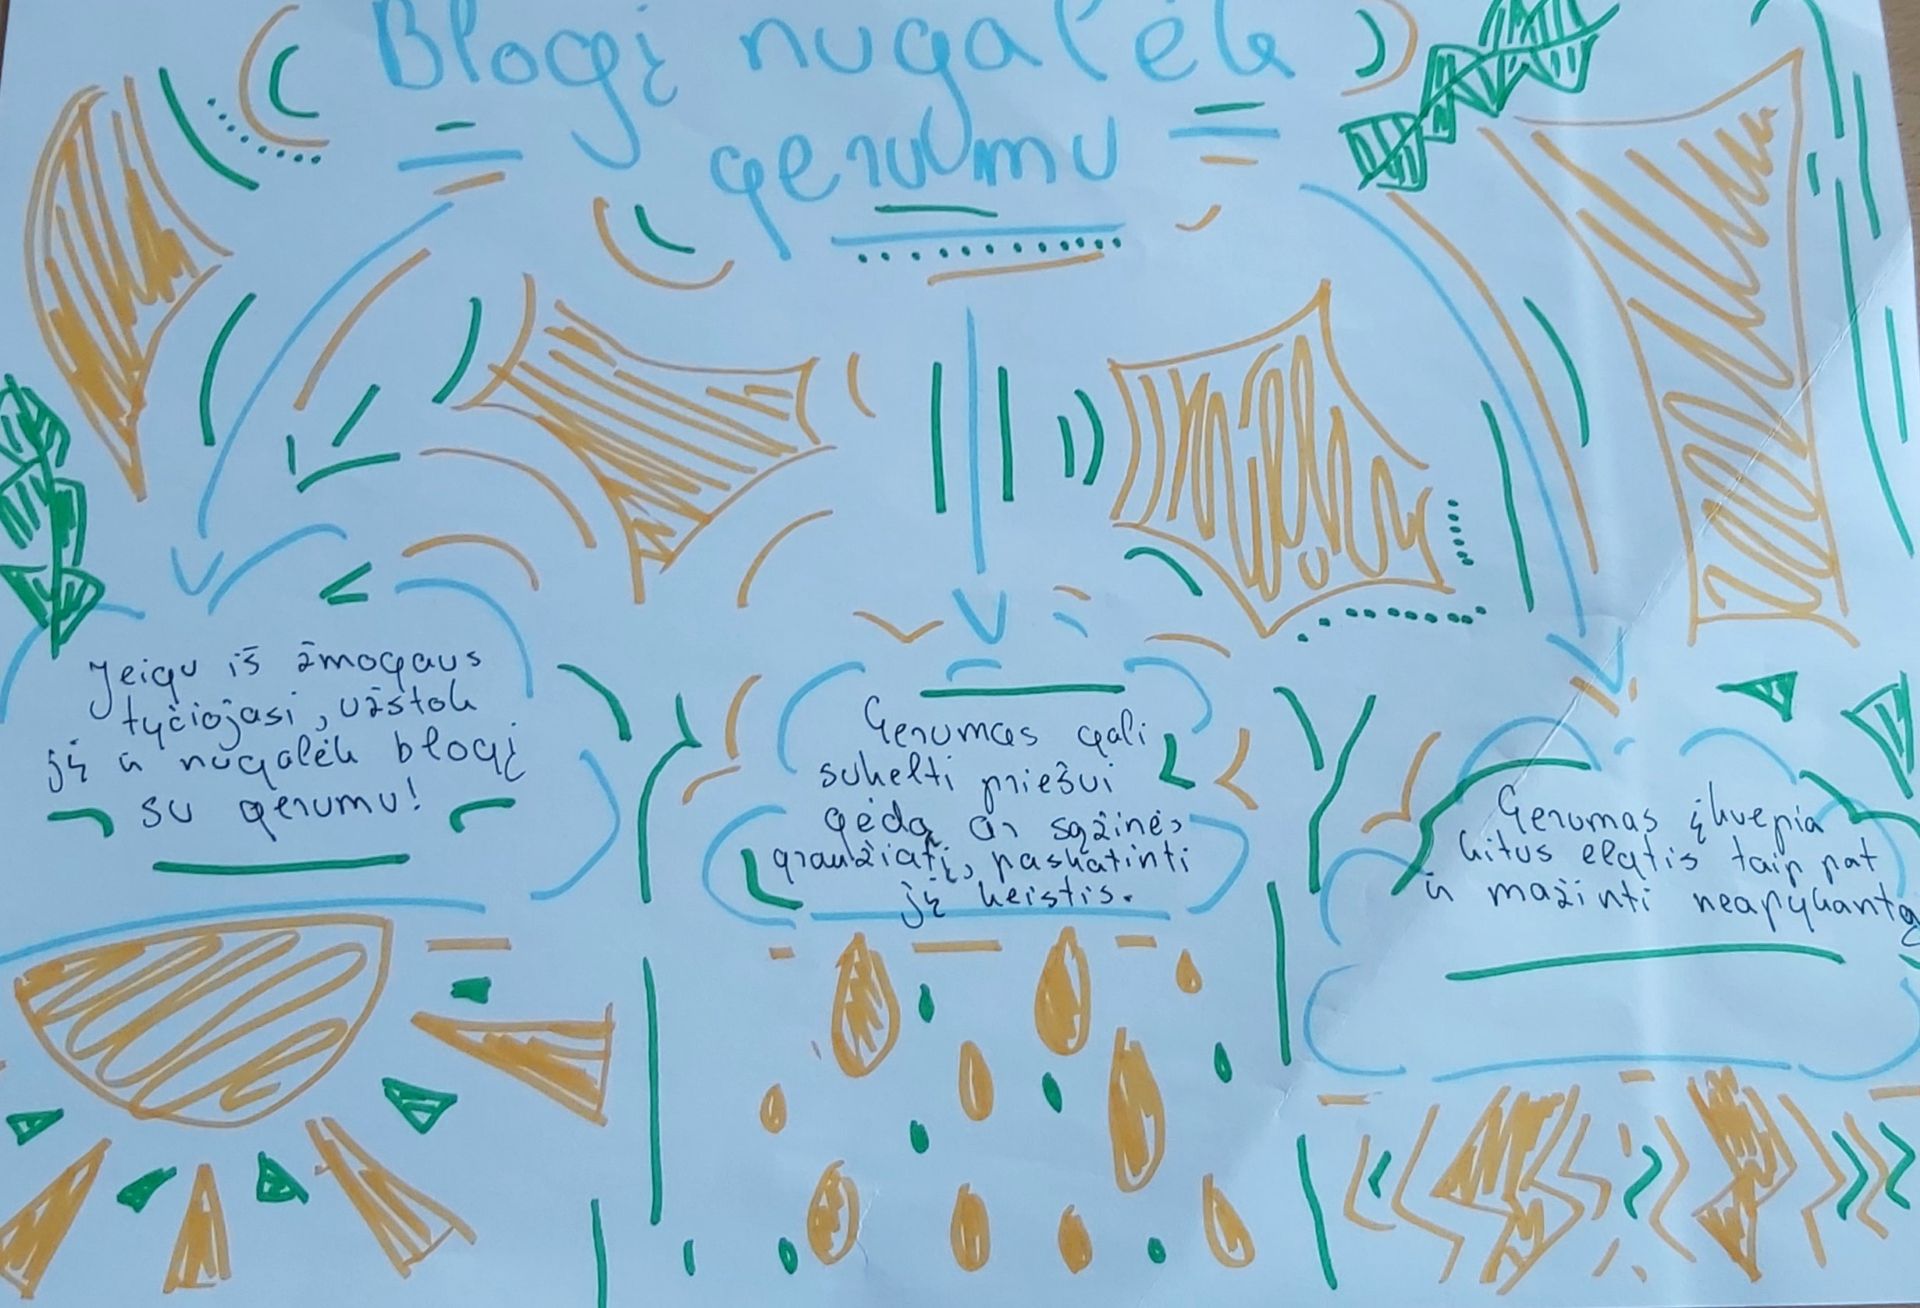 Blogį nugalėk
gerumu
Jeigu iš žmogaus
tyčiojasi, užstok
jį ir nugalėk blogį
su gerumu!
Gerumas gali
sukelti priešui
gėdą ar sąžinės
graužiatį, paskatinti
jį keistis.
Gerumas įkvepia
kitus elgtis taip pat
ir mažinti neapykantą